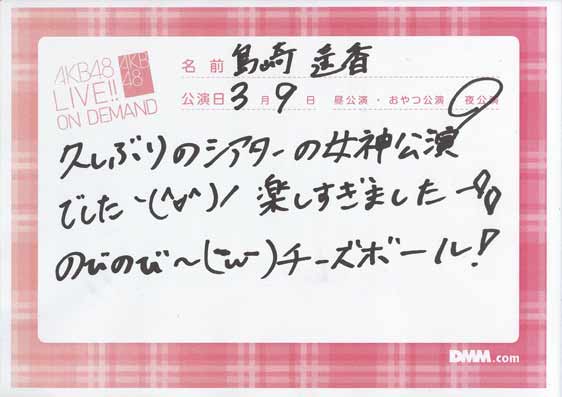 AKB48
LIVE!!
ON DEMAND
AKB
48
名前 島崎 遥香
公演日 3月9日 昼公演・おやつ公演 夜公演
久しぶりのシアターの女神公演
でしたヽ(^∀^)ノ 楽しすぎましたー!!
のびのび〜(˘ω˘)チーズボール!
DMM.com